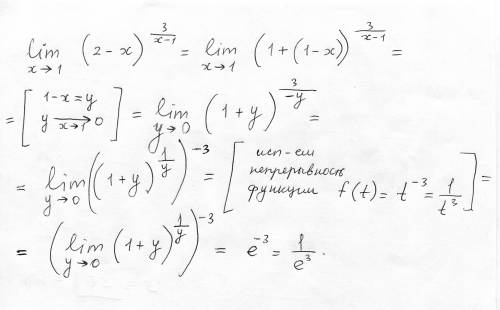 lim_{x→1} (2-x)^{3/(x-1)} = lim_{x→1} (1+(1-x))^{3/(x-1)} =
= [1-x=y, y →_{x→1} 0] = lim_{y→0} (1+y)^{3/(-y)} =
= lim_{y→0} ((1+y)^{1/y})^{-3} = [исп-ем непрерывность функции f(t) = t^{-3} = 1/t^3] =
= (lim_{y→0} (1+y)^{1/y})^{-3} = e^{-3} = 1/e^3.